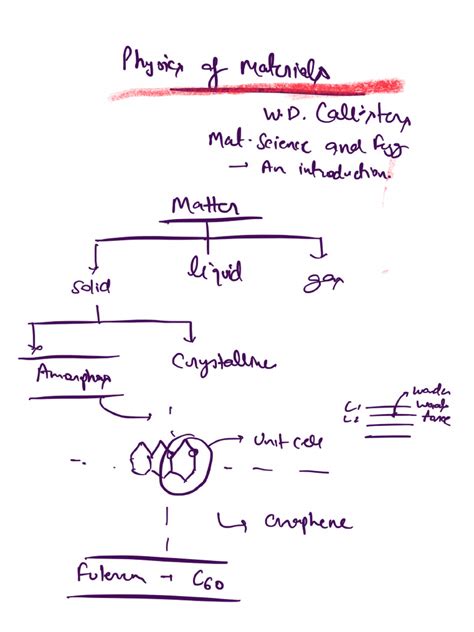 Physics of Materials
W.D. Callister
Mat. Science and Engg
→ An introduction.
Matter
solid
liquid
gas
Amorphous
Crystalline
L1
L2
Unit cell
↳ Graphene
Fuleren → C60